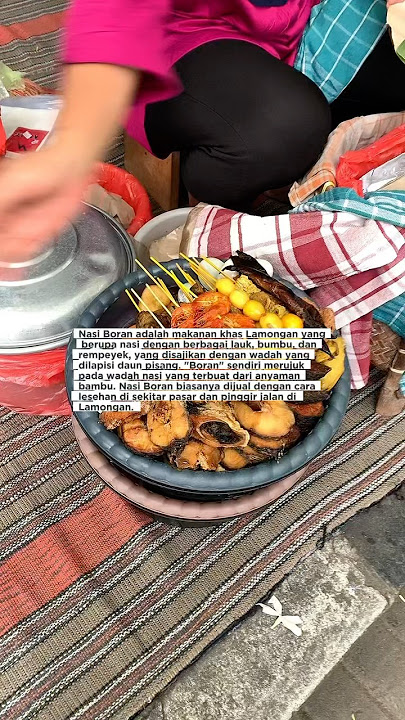 Nasi Boran adalah makanan khas Lamongan yang
berupa nasi dengan berbagai lauk, bumbu, dan
rempeyek, yang disajikan dengan wadah yang
dilapisi daun pisang. "Boran" sendiri merujuk
pada wadah nasi yang terbuat dari anyaman
bambu. Nasi Boran biasanya dijual dengan cara
lesehan di sekitar pasar dan pinggir jalan di
Lamongan.